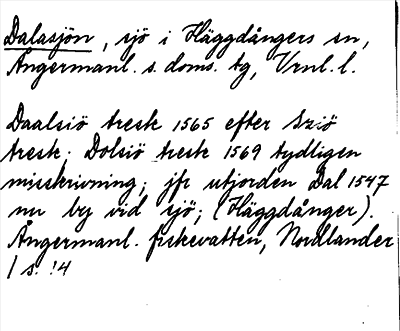 Dalasjön, sjö i Häggdångers sn,
Ångermanl. s. doms. tg, Vrnl. l.
Daalsiö tresk 1565 efter Siö
tresk; Dolsiö tresk 1569 tydligen
misskrivning; jfr utjorden Dal 1547
nu by vid sjö; (Häggdånger).
Ångermanl. fiskevatten, Nordlander
1 s. 14